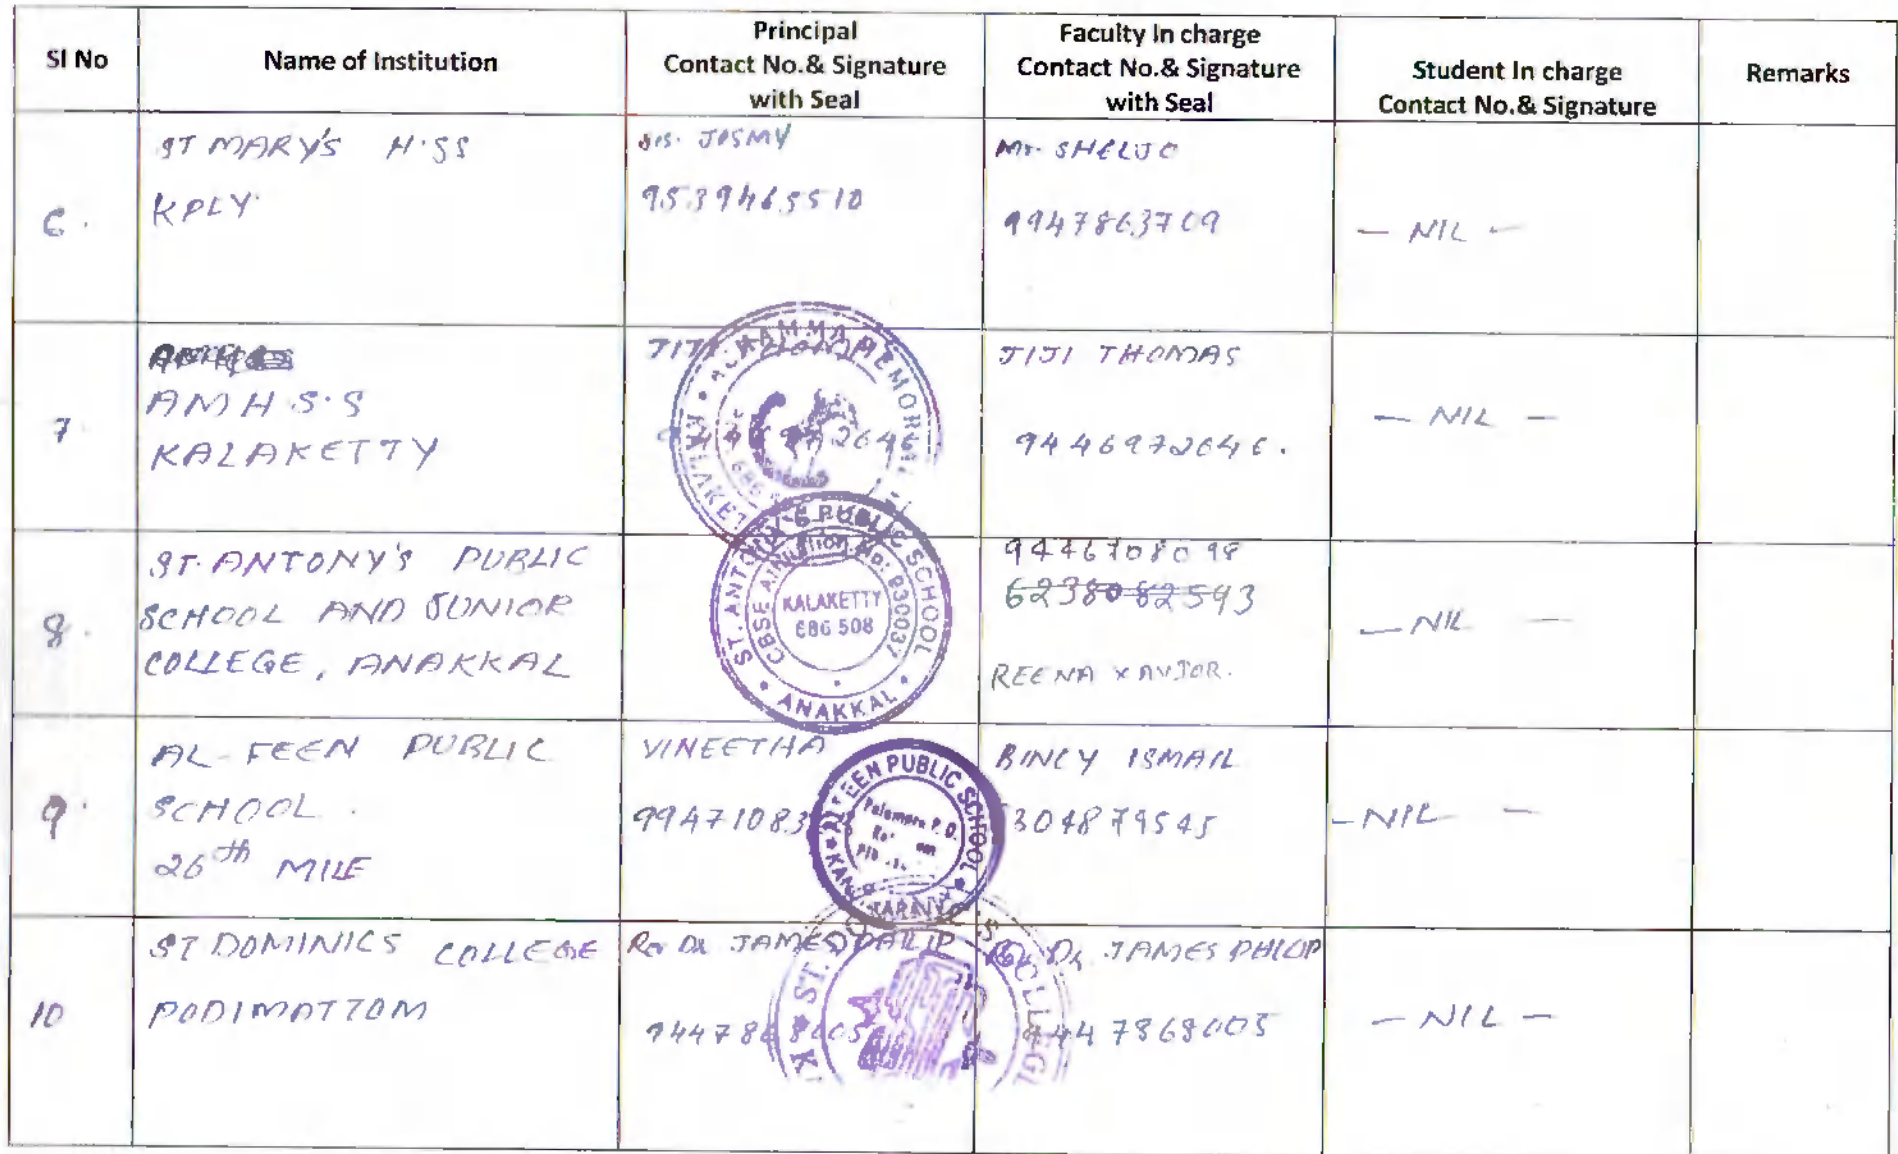 Sl No
Name of Institution
Principal
Contact No.& Signature
with Seal
Faculty In charge
Contact No.& Signature
with Seal
Student In charge
Contact No.& Signature
Remarks
6.
ST MARY'S H.SS
KPLY.
Sis. JOSMY
9539465510
Mr. SHELJO
9947863709
- NIL -
7
AMH S.S
KALAKETTY
JIJI THOMAS
9446972646
JIJI THOMAS
9446972646.
- NIL -
8.
ST. ANTONY'S PUBLIC
SCHOOL AND JUNIOR
COLLEGE, ANAKKAL
ST. ANTONY'S PUBLIC SCHOOL
CBSE
No: 93003
KALAKETTY
686 508
ANAKKAL
9446708098
6238082593
REENA XAVIOR.
- NIL -
9.
AL-FEEN PUBLIC
SCHOOL.
26th MILE
VINEETHA
99471083
PUBLIC SCHOOL
BINCY ISMAIL
304879545
- NIL -
10
ST DOMINICS COLLEGE
PODIMATTOM
Rev Dr JAMES PHILIP
ST.
Rev Dr JAMES PHILIP
9447868005
- NIL -